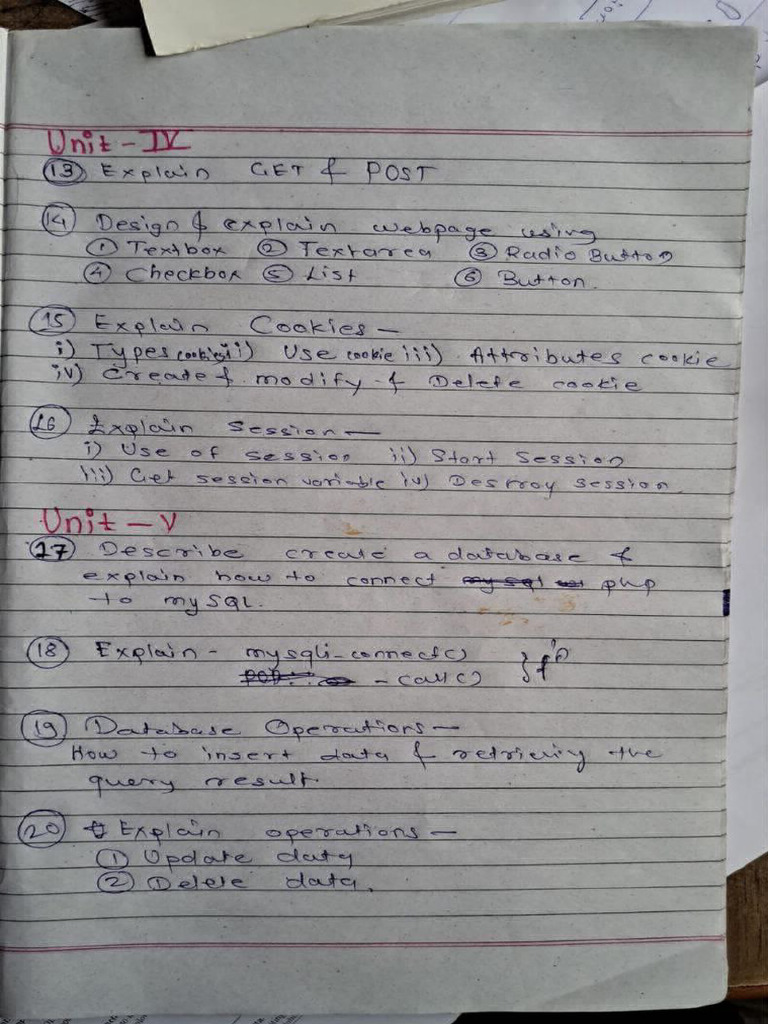 Unit-IV
13 Explain GET & POST
14 Design & explain webpage using
① Textbox ② Textarea ③ Radio Button
④ Checkbox ⑤ List ⑥ Button.
15 Explain Cookies-
i) Types cookies ii) Use cookie iii) Attributes cookie
iv) Create & modify & Delete cookie
16 Explain Session-
i) Use of session ii) Start Session
iii) Get session variable iv) Destroy session
Unit-V
17 Describe create a database &
explain how to connect php
to mySQL.
18 Explain - mysqli-connect()
- call()
19 Database Operations-
How to insert data & retrieviy the
query result.
20 Explain operations-
① Update data
② Delete data.